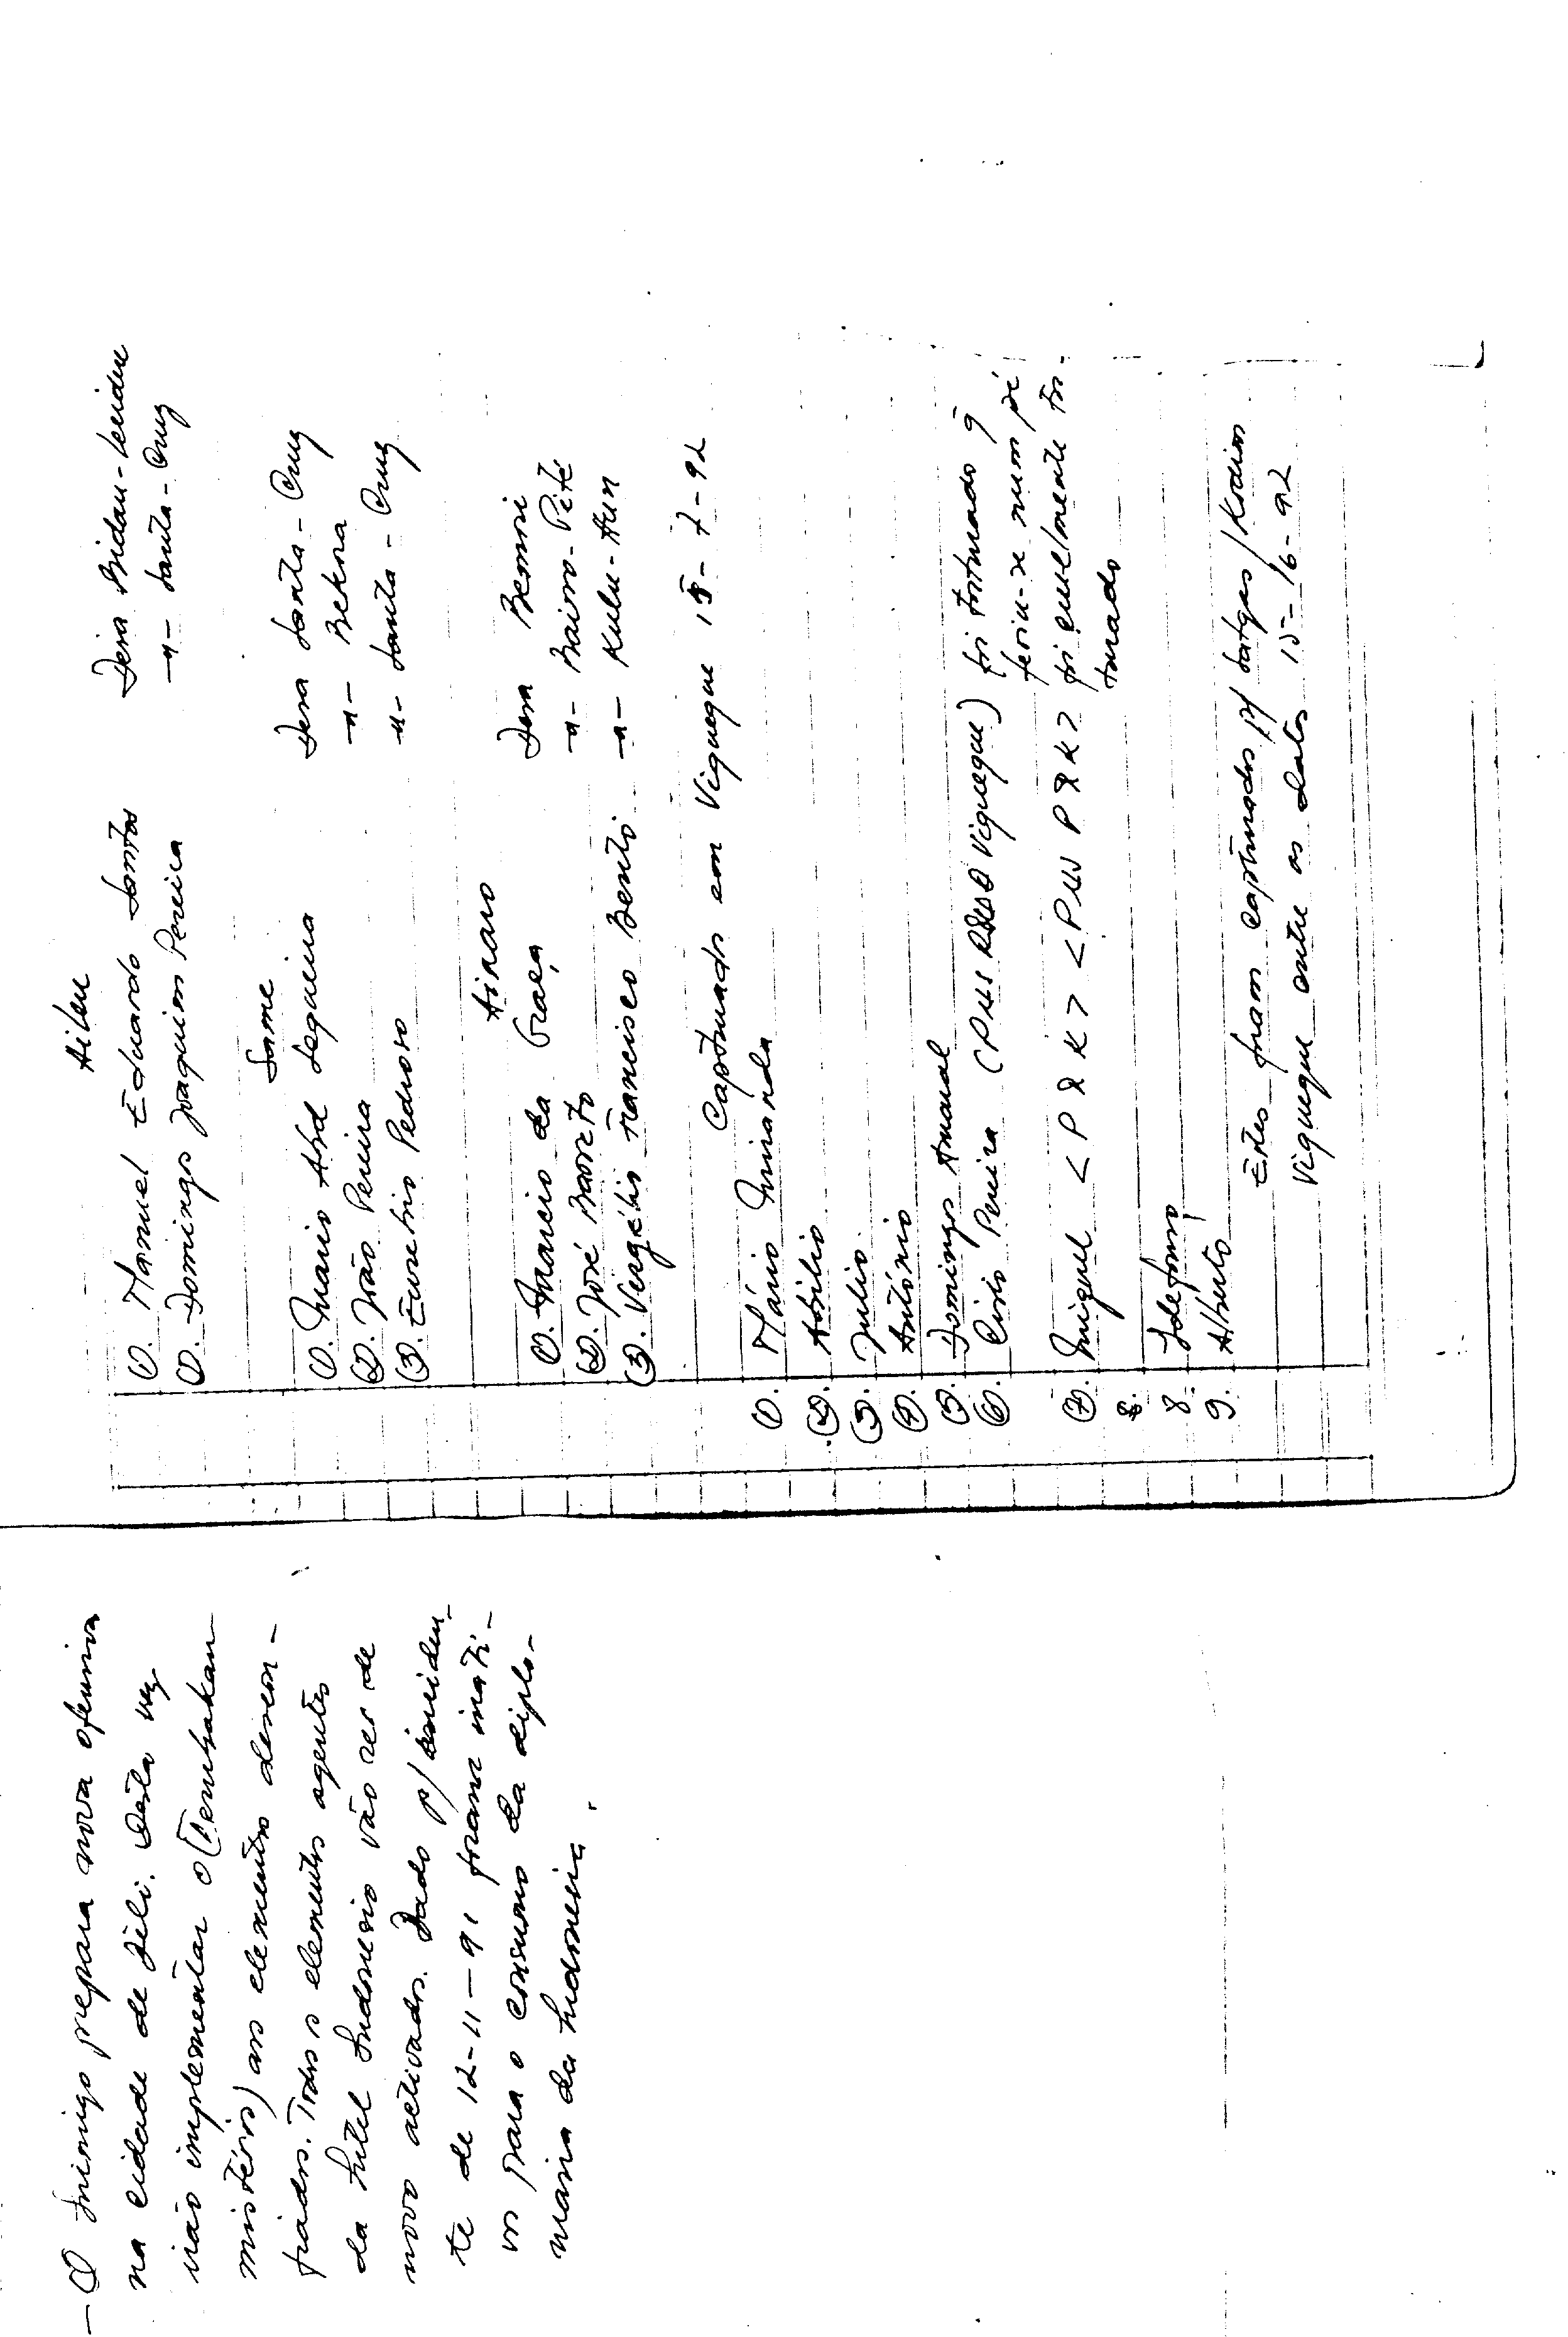 Aileu
①. Manuel Eduardo Santos Desa Bidau-Lecidere
①. Domingos Joaquim Pereira -"- Santa-Cruz
Same
①. Mario Abel Sequeira Desa Santa-Cruz
②. João Pereira -"- Bekora
③. Euzebio Pedroso -"- Santa-Cruz
Ainaro
①. Marcio da Graça Desa Bemori
②. José Barreto -"- Bairro-Pite
③. Vergílio Francisco Bento -"- Kulu-Hun
Capturado em Viqueque 15-7-92
①. Mário Miranda
②. Abílio
③. Julio
④. António
⑤. Domingos Amaral
⑥. Cirio Pereira (Viqueque) foi torturado q̃
feriu-se num pé
⑦. Miguel foi cruelmente tor-
turado
8.
8. Ildefonso
9. Alberto
Estes foram capturados p/ Satgas/Kodim
Viqueque entre as datas 15-16-92
— ① Inimigo prepara nova ofensiva
na cidade de Díli. Desta vez
irão implementar o (Penembakan
mistérios) aos elementos descon-
fiados. Todos os elementos agentes
da Intel Indonésio vão ser de
novo activados. Dado p/ inciden-
te de 12-11-91 foram inati-
vos para o consumo da diplo-
macia da Indonesia.